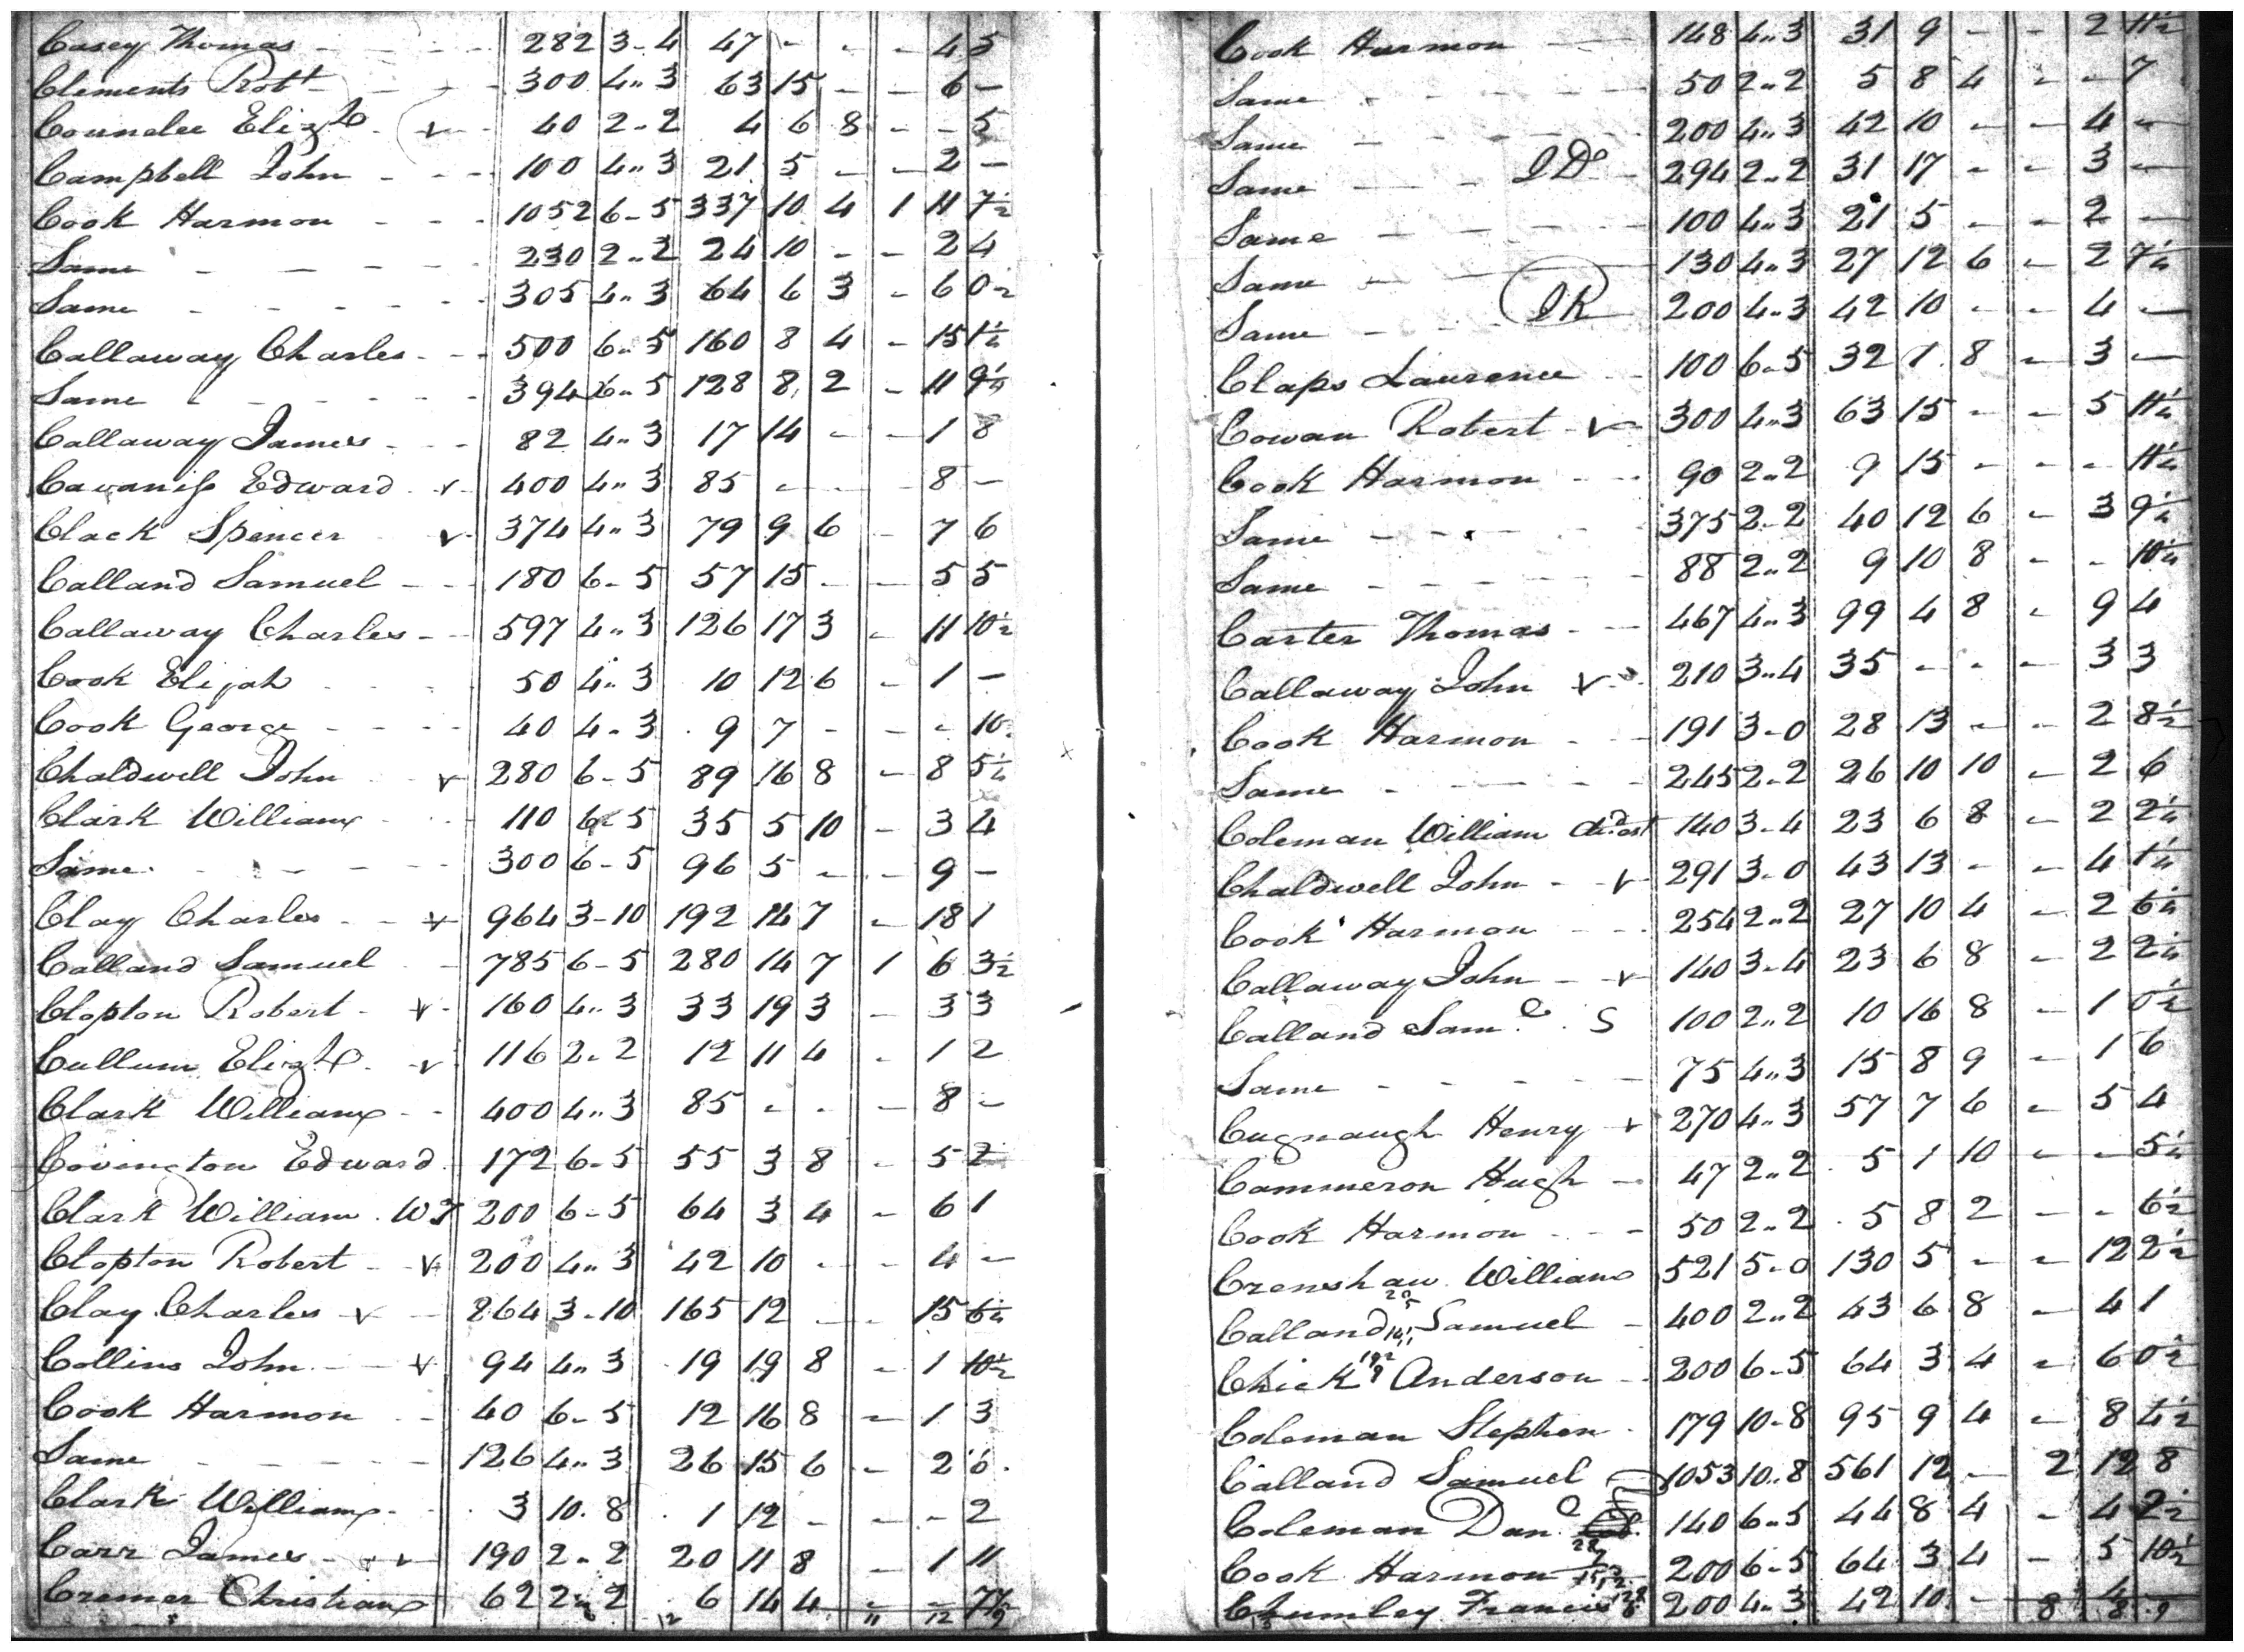 Casey Thomas - - - - 282 3-4 47 - - - 4 5
Clements Robt - - - 300 4"3 63 15 - - 6 -
Councelee Elizth v 40 2-2 4 6 8 - - 5
Campbell John - - - 100 4"3 21 5 - - 2 -
Cook Harmon - - - 1052 6-5 337 10 4 1 11 7½
Same - - - - - 230 2"2 24 10 - - 2 4
Same - - - - - 305 4"3 64 6 3 - 6 0½
Callaway Charles - - 500 6"5 160 8 4 - 15 1¼
Same - - - - - - 394 6"5 128 8 2 - 11 9¼
Callaway James - - - 82 4"3 17 14 - - 1 8
Cavaniss Edward v 400 4"3 85 - - - 8 -
Clack Spencer v 374 4"3 79 9 6 - 7 6
Calland Samuel - - 180 6-5 57 15 - - 5 5
Callaway Charles - - 597 4"3 126 17 3 - 11 10½
Cook Elijah - - - 50 4"3 10 12 6 - 1 -
Cook George - - - - 40 4-3 9 7 - - - 10
Chaldwell John v 280 6-5 89 16 8 - 8 5¼
Clark William - - 110 6-5 35 5 10 - 3 4
Same - - - - - 300 6-5 96 5 - - 9 -
Clay Charles - - v 964 3-10 192 14 7 - 18 1
Calland Samuel - 785 6-5 280 14 7 1 6 3½
Clopton Robert - v - 160 4"3 33 19 3 - 3 3
Cullum Elizth v 116 2-2 12 11 4 - 1 2
Clark William - - 400 4"3 85 - - - 8 -
Covington Edward 172 6-5 55 3 8 - 5 2
Clark William W T 200 6-5 64 3 4 - 6 1
Clopton Robert - v 200 4"3 42 10 - - 4 -
Clay Charles v - 864 3-10 165 12 - - 15 6¼
Collins John - - v 94 4"3 19 19 8 - 1 10½
Cook Harmon - - 40 6-5 12 16 8 - 1 3
Same - - - - - 126 4"3 26 15 6 - 2 6
Clark William - 3 10-8 1 12 - - - 2
Carr James - - v 190 2-2 20 11 8 - 1 11
Cremer Christian 62 2"2 6 14 4 - - 7½
12 11 12 9
Cook Harmon - - 148 4"3 31 9 - - 2 11½
Same - - - - - 50 2"2 5 8 4 - - 7
Same - - - - - 200 4"3 42 10 - - 4 -
Same - - - I Do - 294 2"2 31 17 - - 3 -
Same - - - - - 100 4"3 21 5 - - 2 -
Same - - - 130 4"3 27 12 6 - 2 7¼
Same - - - I R 200 4"3 42 10 - - 4 -
Claps Laurence - - 100 6-5 32 1 8 - 3 -
Cowan Robert - v 300 4"3 63 15 - - 5 11¼
Cook Harmon - - 90 2"2 9 15 - - - 11¼
Same - - - - - 375 2-2 40 12 6 - 3 9¼
Same - - - - - 88 2"2 9 10 8 - - 10¼
Carter Thomas - - 467 4"3 99 4 8 - 9 4
Callaway John v 210 3"4 35 - - - 3 3
Cook Harmon - - 191 3-0 28 13 - - 2 8½
Same - - - - - 245 2-2 26 10 10 - 2 6
Coleman William 140 3-4 23 6 8 - 2 2¼
Chaldwell John - v 291 3-0 43 13 - - 4 1¼
Cook Harmon - - 254 2"2 27 10 4 - 2 6¼
Callaway John - v 140 3-4 23 6 8 - 2 2¼
Calland Saml S 100 2"2 10 16 8 - 1 0½
Same - - - - - 75 4"3 15 8 9 - 1 6
Cugnaugh Henry v 270 4"3 57 7 6 - 5 4
Cammeron Hugh - 47 2"2 5 1 10 - - 5¼
Cook Harmon - - - 50 2"2 5 8 2 - - 6½
Crenshaw William 521 5-0 130 5 - - 12 2½
Calland Samuel - 400 2"2 43 6 8 - 4 1
Chick Anderson - 200 6-5 64 3 4 - 6 0½
Coleman Stephen - 179 10-8 95 9 4 - 8 4½
Calland Samuel 1053 10"8 561 12 - 2 12 8
Coleman Danl 140 6"5 44 8 4 - 4 2½
Cook Harmon 200 6-5 64 3 4 - 5 10½
Chumley Francis 200 4"3 42 10 - - 4 -
8 8 9